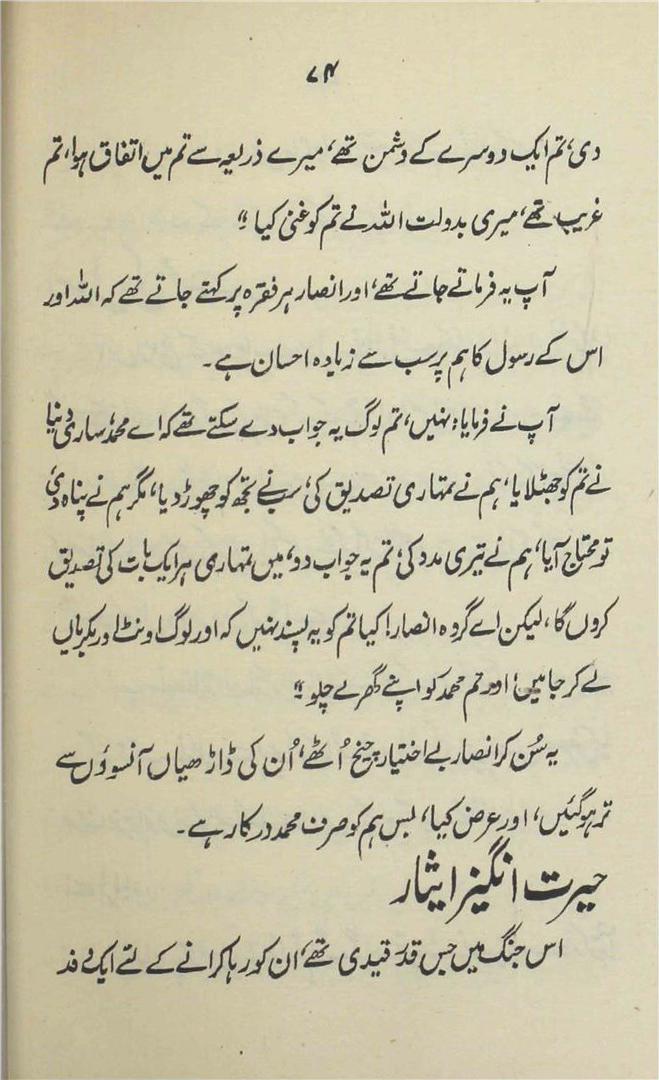 ۷۴
دی، تم ایک دوسرے کے دشمن تھے، میرے ذریعہ سے تم میں اتفاق ہوا، تم
غریب تھے، میری بدولت اللہ نے تم کو غنی کیا ؟"
آپ یہ فرماتے جاتے تھے، اور انصار ہر فقرہ پر کہتے جاتے تھے کہ اللہ اور
اس کے رسول کا ہم پر سب سے زیادہ احسان ہے۔
آپ نے فرمایا: نہیں، تم لوگ یہ جواب دے سکتے تھے کہ اے محمدؐ ساری دنیا
نے تم کو جھٹلایا، ہم نے تمہاری تصدیق کی، سب نے تجھ کو چھوڑ دیا، مگر ہم نے پناہ دی،
تو محتاج آیا، ہم نے تیری مدد کی، تم یہ جواب دو، میں تمہاری ہر ایک بات کی تصدیق
کروں گا، لیکن اے گروہ انصار! کیا تم کو یہ پسند نہیں کہ اور لوگ اونٹ اور بکریاں
لے کر جائیں، اور تم محمد کو اپنے گھر لے چلو ؟"
یہ سُن کر انصار بے اختیار چیخ اُٹھے، اُن کی ڈاڑھیاں آنسوؤں سے
تر ہوگئیں، اور عرض کیا، بس ہم کو صرف محمد درکار ہے۔
حیرت انگیز ایثار
اس جنگ میں جس قدر قیدی تھے، ان کو رہا کرانے کے لئے ایک وفد